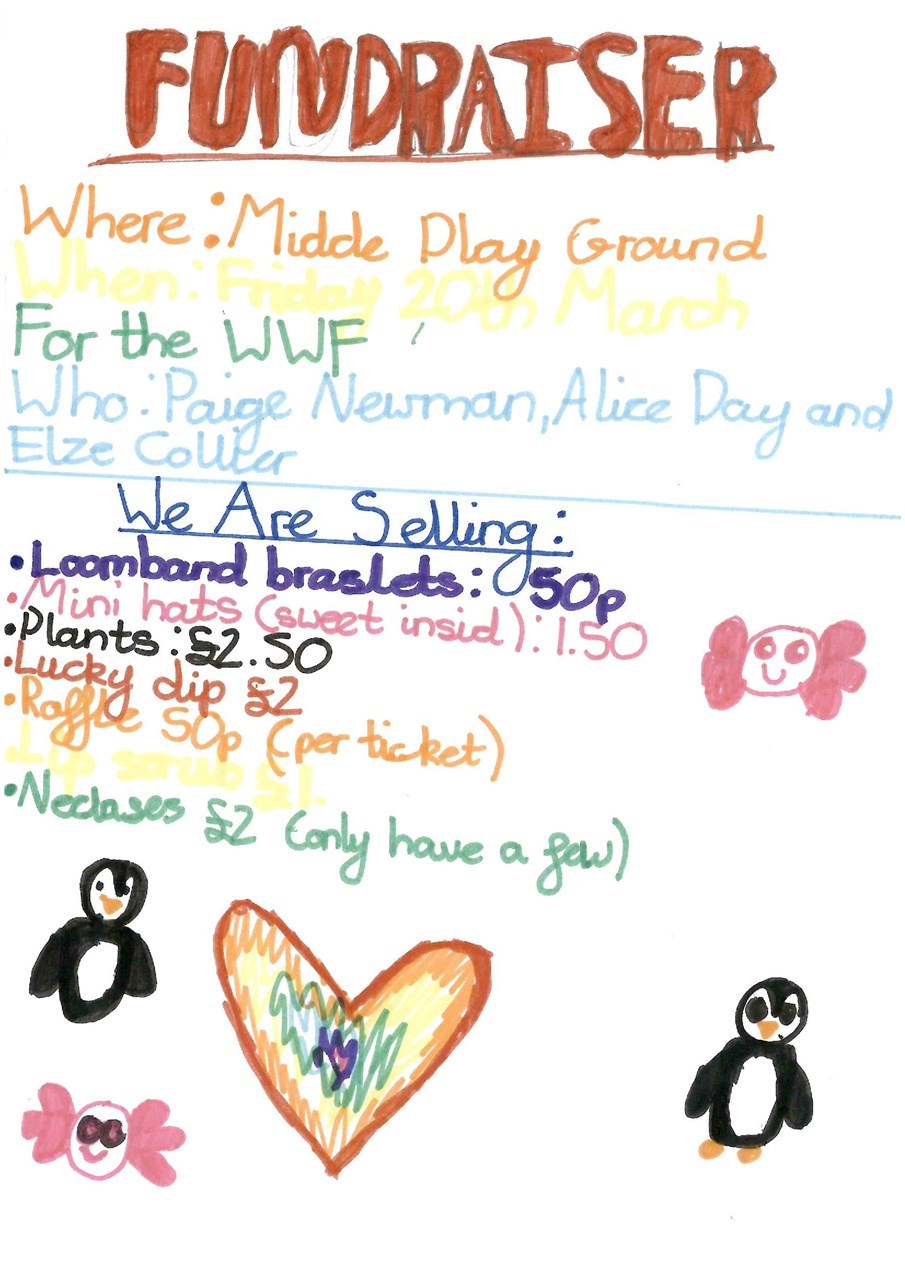 FUNDRAISER
Where: Midde Play Ground
When: Friday 20th March
For the WWF
Who: Paige Newman, Alice Day and
Elze Collier
We Are Selling:
•Loomband braslets: 50p
•Mini hats (sweet insid): 1.50
•Plants: £2.50
•Lucky dip £2
•Raffle 50p (per ticket)
•Lip scrub £1.
•Neclases £2 (only have a few)